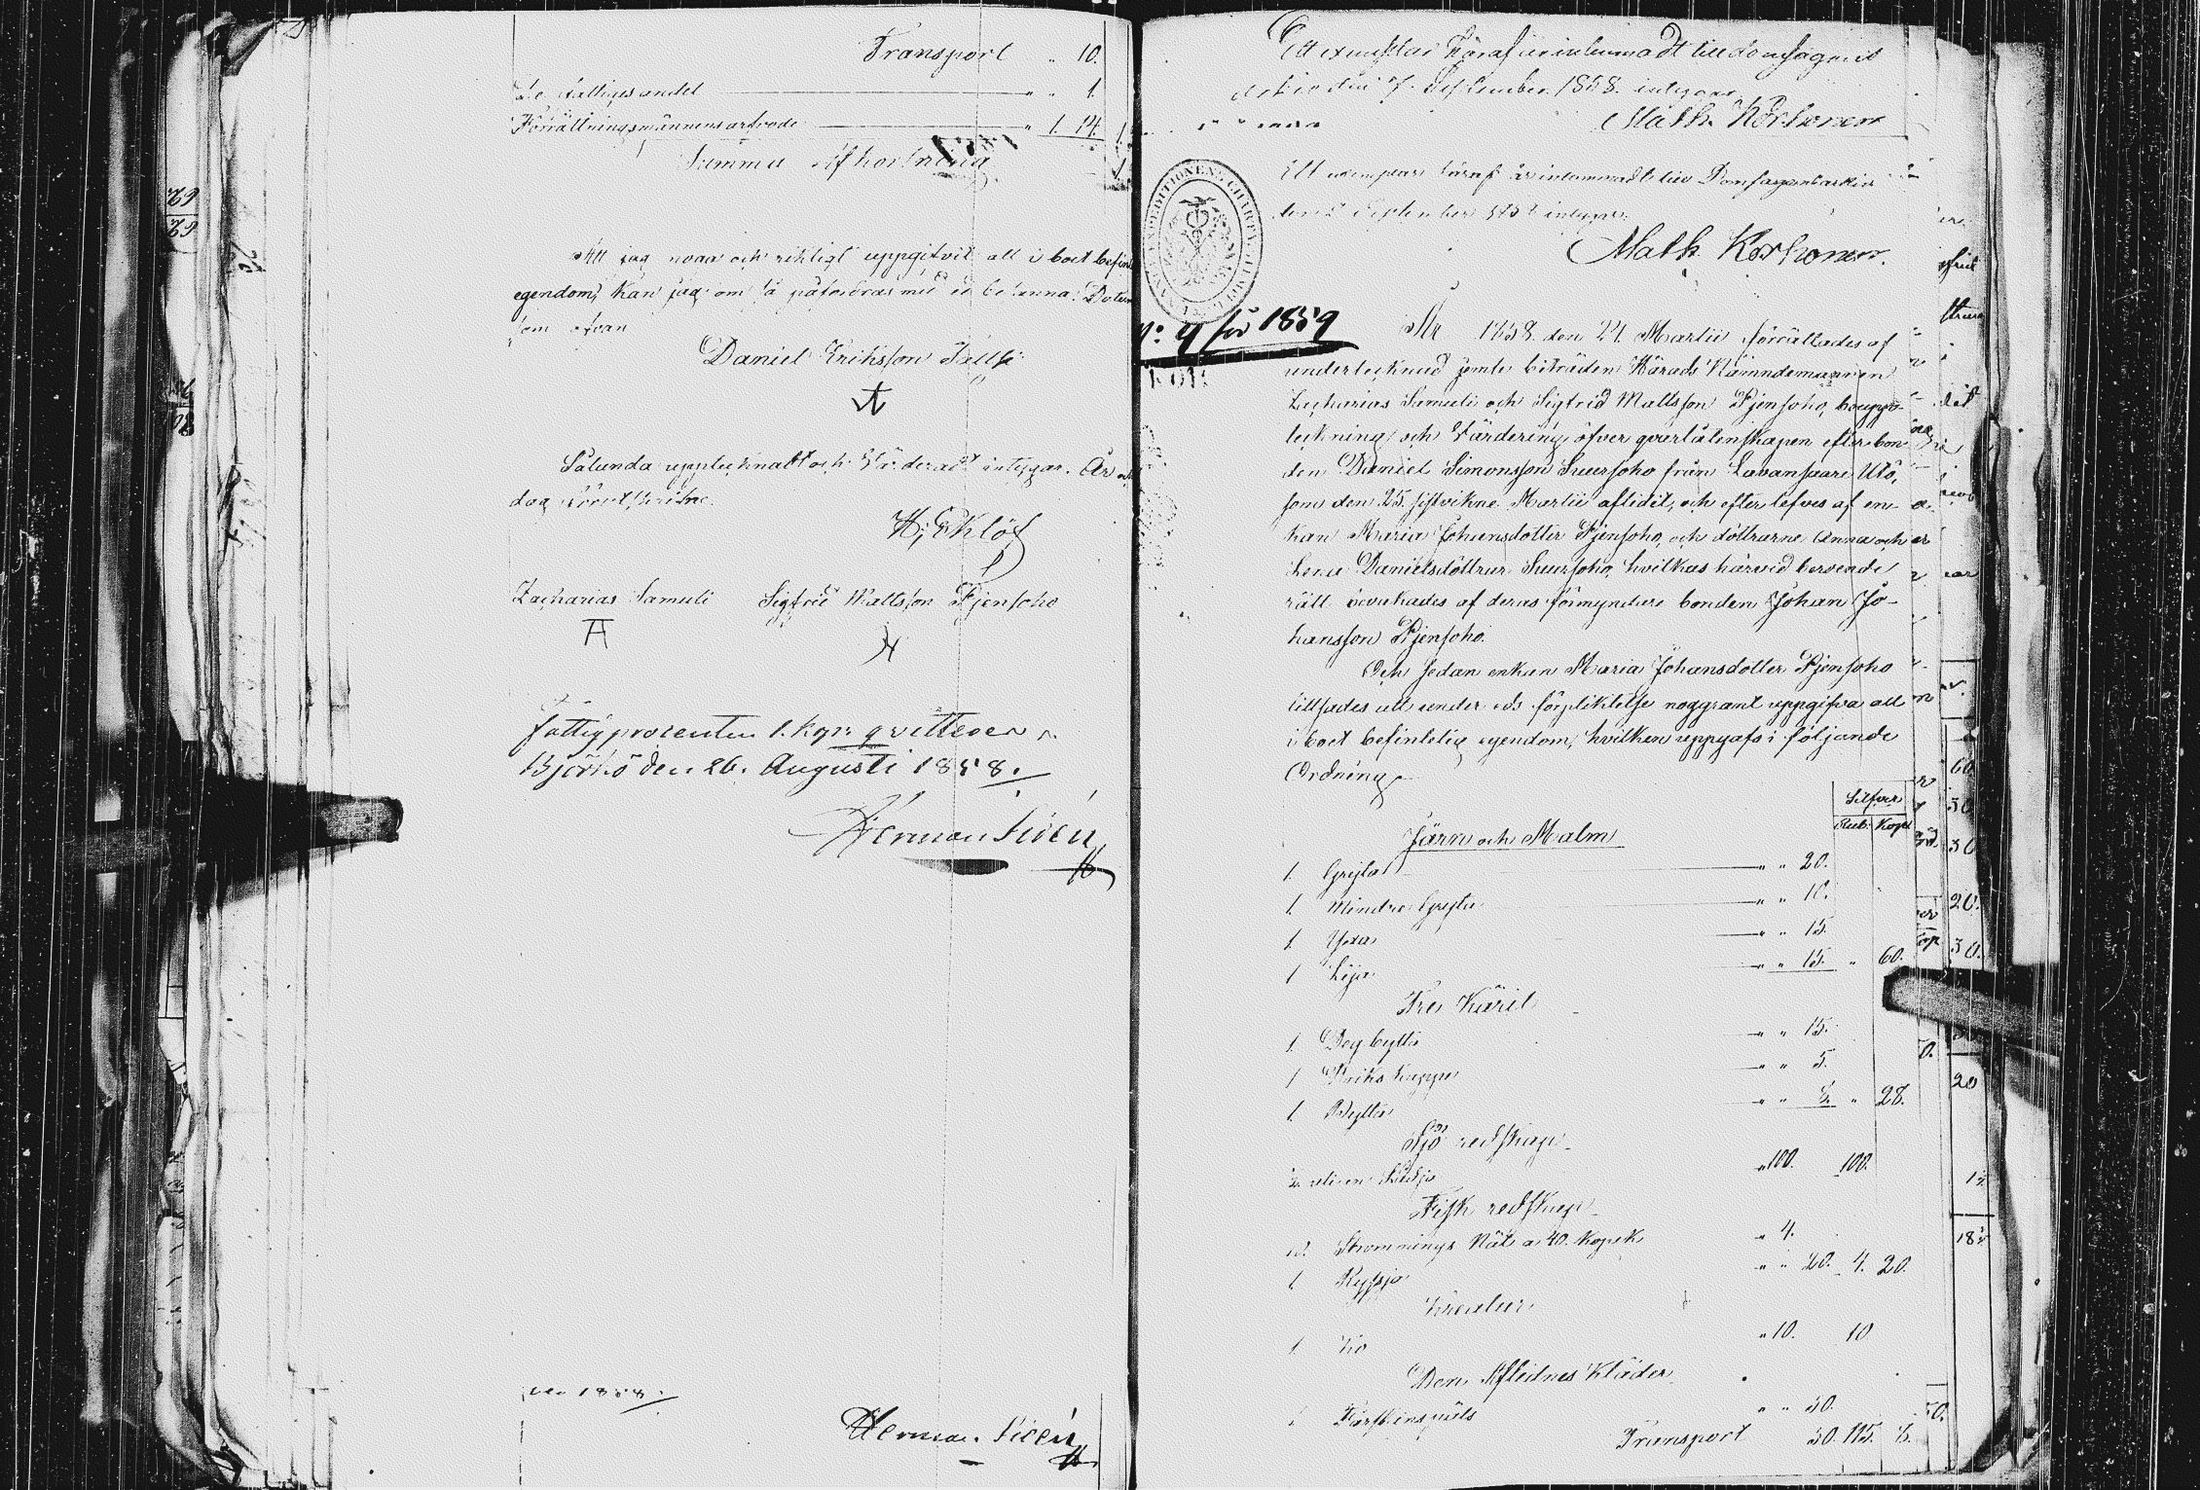 Transport " 10.
De fattiges andel " " 1.
Förrättningsmännens arfvode " 1. 14.
Summa Afkortning
Att jag noga och riktigt uppgifvit allt i boet befint
egendom, kan jag om så påfordras med ed bekänna. Datum
som ofvan
Daniel Eriksson Tallsi
Sålunda upptecknadt och Värderadt intygar. År och
dag förutskrifne.
H; Eklöf
Zacharias Samuli Sigfrid Mattsson Pjensoho
fattigprocenten 1. kop: qvitteras
Björkö den 26. Augusti 1858.
Herman Siren
1858.
Herman Siren
Ett exemplar häraf är inkommadt till domsagans
den 7. September 1858. intygar
Math. Korhonen
Ett exemplar häraf är inkommadt till Domsagans arkiv
den September 1858 intygar.
Math. Korhonen.
N: 9 för 1859
År 1858. den 27. Martii förrättades af
undertecknad jemte biträden Härads Nämndemannen
Zacharias Samuli och Sigfrid Mattsson Pjensoho, bouppo-
teckning och Värdering öfver qvarlåtenskapen efter bon-
den Daniel Simonsson Suursoho från Lavansaari Utö,
som den 25. sistvikne Martii aflidit, och efterlefves af en-
kan Maria Johansdotter Pjensoho, och döttrarne Anna och
Lena Daniels döttrar Suursoho, hvilkas härvid beroende
rätt bevakades af deras förmyndare bonden Johan Jo-
hansson Pjensoho.
Och sedan enkan Maria Johansdotter Pjensoho
tillsades att under eds förpliktelse noggrant uppgifva all
i boet befintelig egendom, hvilken uppgafs i följande
Ordning
Silfver
Rub. Kop.
Järn och Malm
1. Gryta " " 20.
1. Mindre Gryta " " 10.
1 Yxa " " 15.
1 Lija " " 15. " 60.
Trä Käril
1. Deg bytta " " 15.
1 " " 5.
1. Bytta " " 8. " 28.
Sjö redskap
" 100. 100.
Fisk redskap
10. Strömmings Nät a 40. Kopek " 4.
1. Ryssja " " 20. 4. 20.
Kreatur
1. Ko " 10. 10
Den Aflidnes Kläder
1 Fårskinspäls " " 50.
Transport 50. 115. 8.